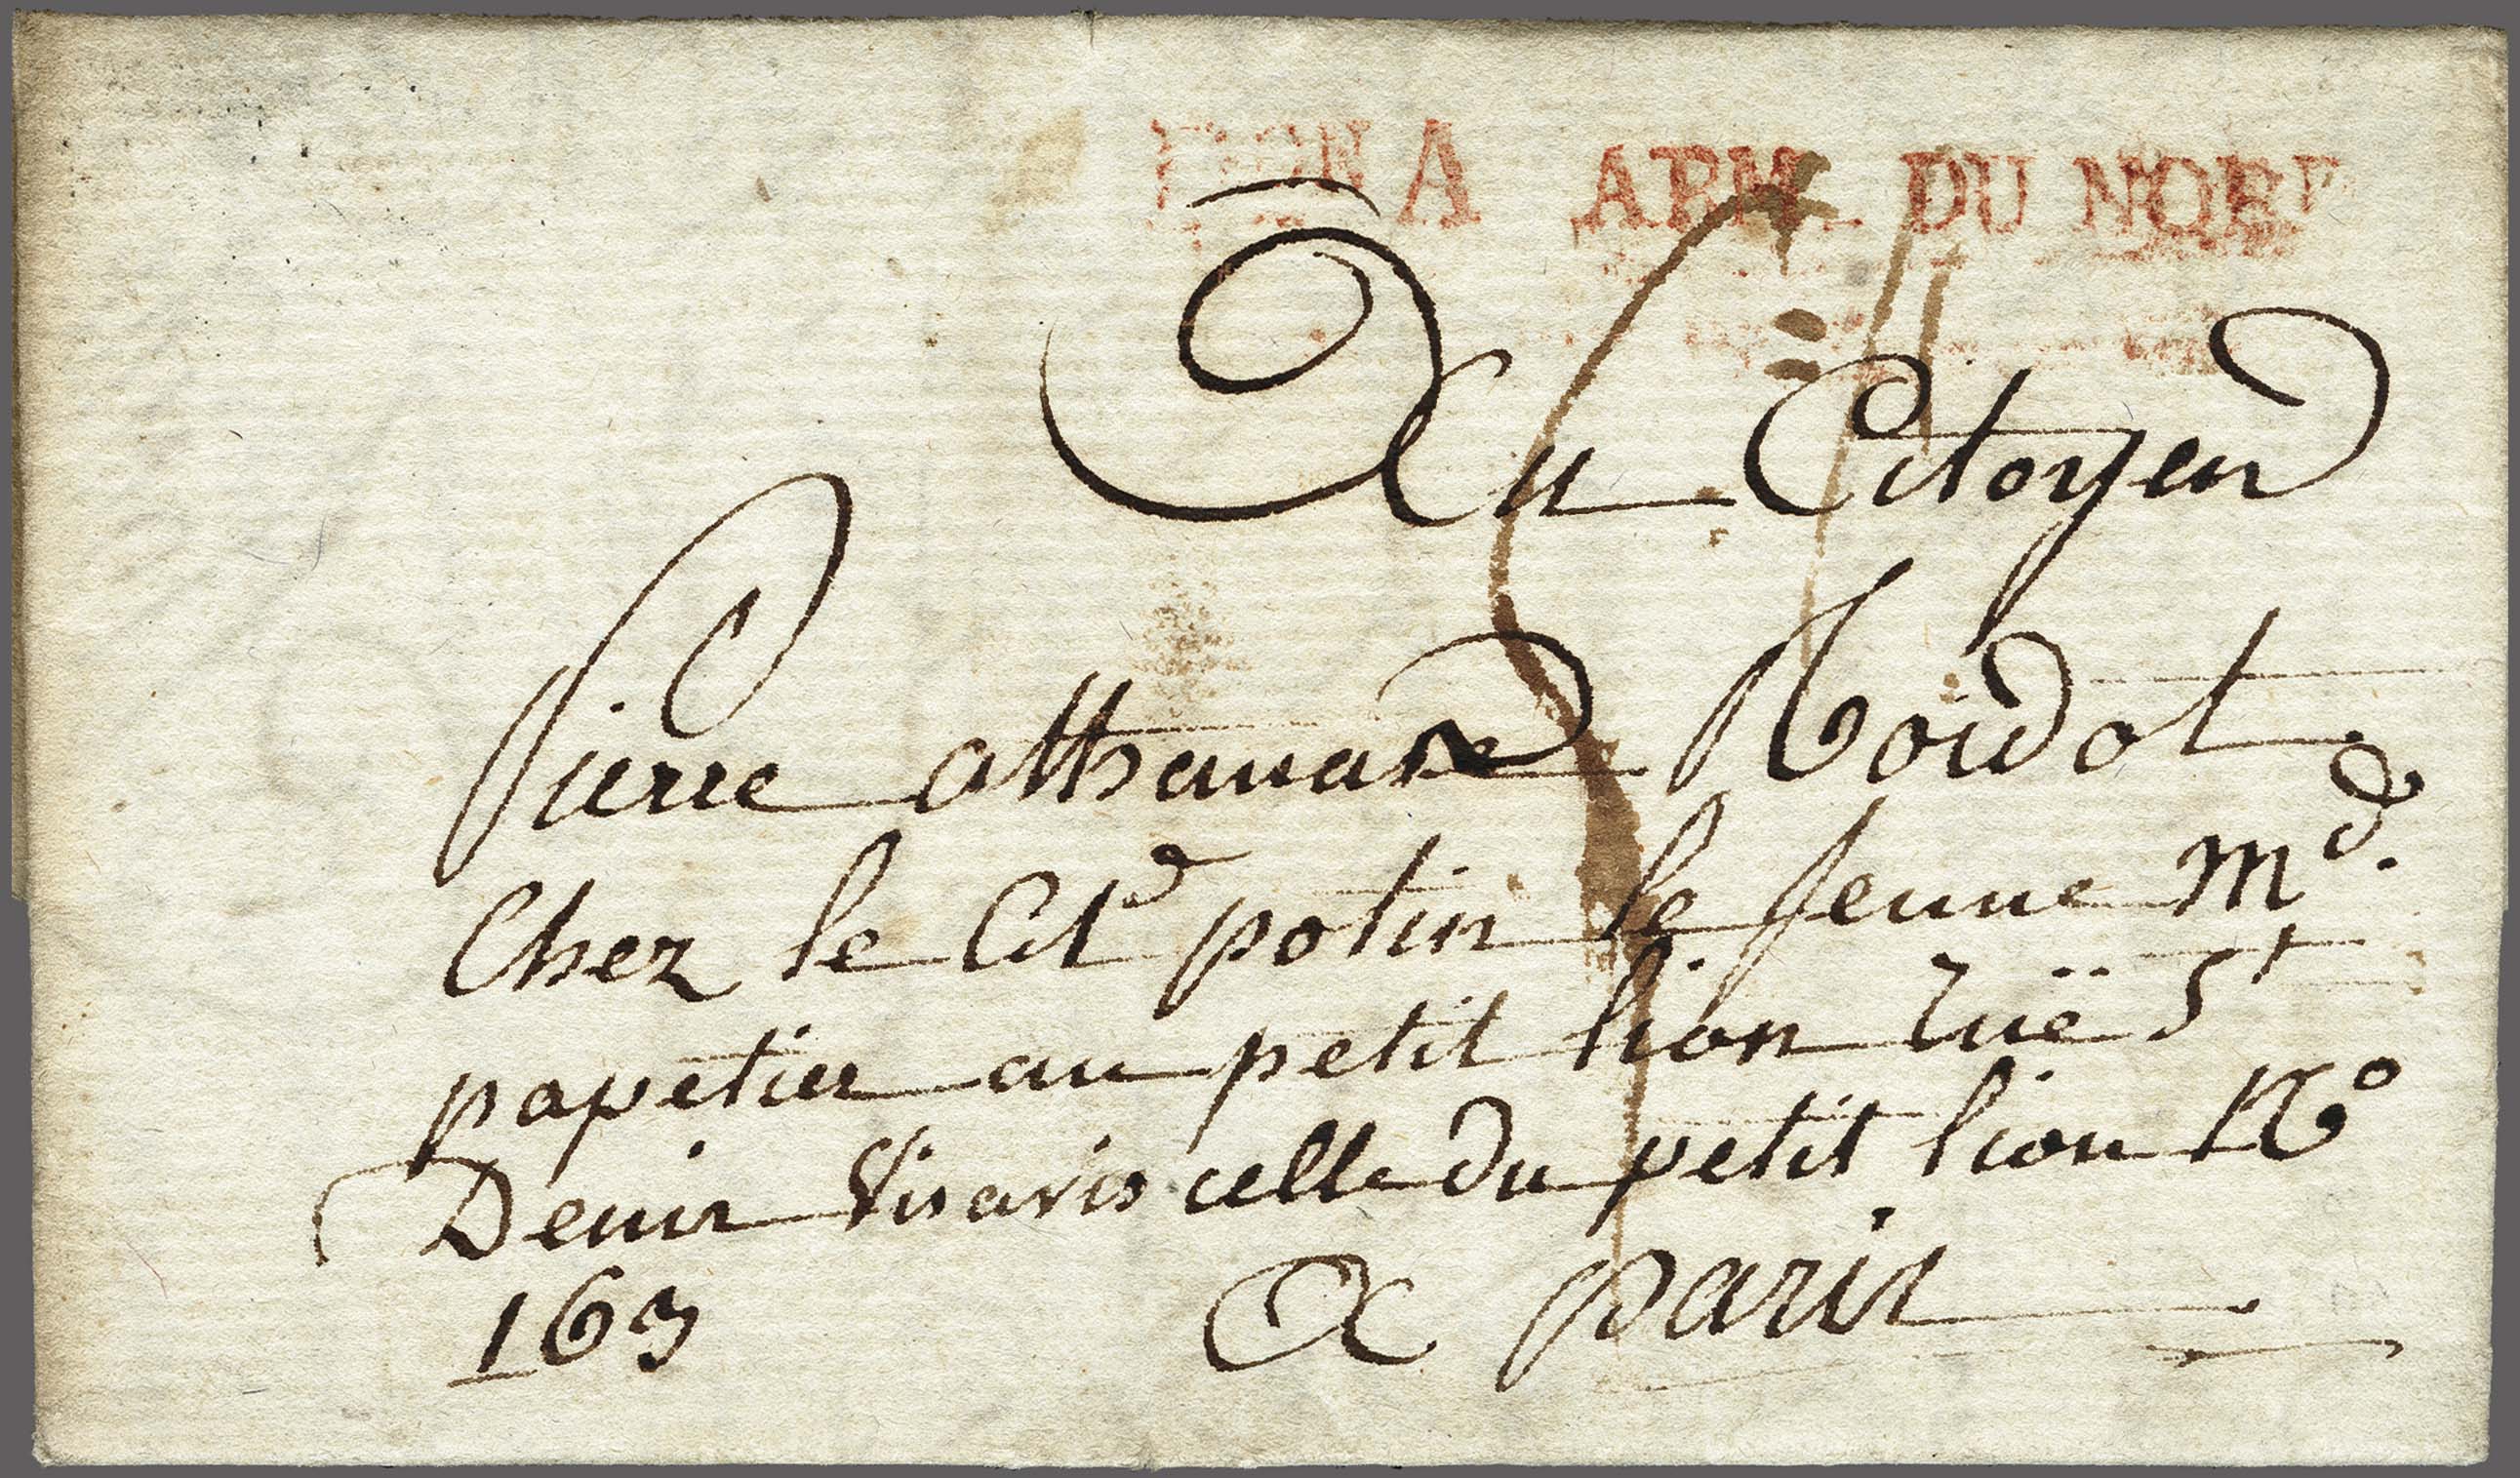 A ARM. DU NORD
Au Citoyen
Pierre athanase Roidot
Chez le Cit potin le Jeune Md.
papetier au petit lion rüe St
Denis Visavis celle du petit lion No
163 A paris